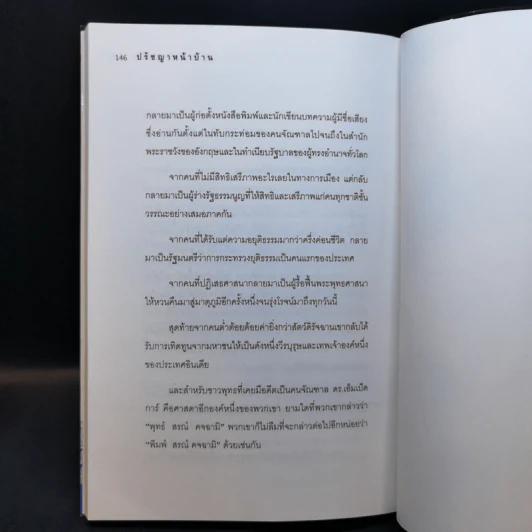 146 ปรัชญาหน้าบ้าน
กลายมาเป็นผู้ก่อตั้งหนังสือพิมพ์และนักเขียนบทความผู้มีชื่อเสียง
ซึ่งอ่านกันตั้งแต่ในทับกระท่อมของคนจัณฑาลไปจนถึงในสำนัก
พระราชวังของอังกฤษและในทำเนียบรัฐบาลของผู้ทรงอำนาจทั่วโลก
จากคนที่ไม่มีสิทธิเสรีภาพอะไรเลยในทางการเมือง แต่กลับ
กลายมาเป็นผู้ร่างรัฐธรรมนูญที่ให้สิทธิและเสรีภาพแก่คนทุกชาติชั้น
วรรณะอย่างเสมอภาคกัน
จากคนที่ได้รับแต่ความอยุติธรรมมากว่าครึ่งค่อนชีวิต กลาย
มาเป็นรัฐมนตรีว่าการกระทรวงยุติธรรมเป็นคนแรกของประเทศ
จากคนที่ปฏิเสธศาสนากลายมาเป็นผู้รื้อฟื้นพระพุทธศาสนา
ให้หวนคืนมาสู่มาตุภูมิอีกครั้งหนึ่งจนรุ่งโรจน์มาถึงทุกวันนี้
สุดท้ายจากคนต่ำต้อยด้อยค่ายิ่งกว่าสัตว์ดิรัจฉานเขากลับได้
รับการเทิดทูนจากมหาชนให้เป็นดังหนึ่งวีรบุรุษและเทพเจ้าองค์หนึ่ง
ของประเทศอินเดีย
และสำหรับชาวพุทธที่เคยมีอดีตเป็นคนจัณฑาล ดร.เอ็มเบ็ด
การ์ คือศาสดาอีกองค์หนึ่งของพวกเขา ยามใดที่พวกเขากล่าวว่า
"พุทธํ สรณํ คจฺฉามิ" พวกเขาก็ไม่ลืมที่จะกล่าวต่อไปอีกหน่อยว่า
"พิมพํ สรณํ คจฺฉามิ" ด้วยเช่นกัน